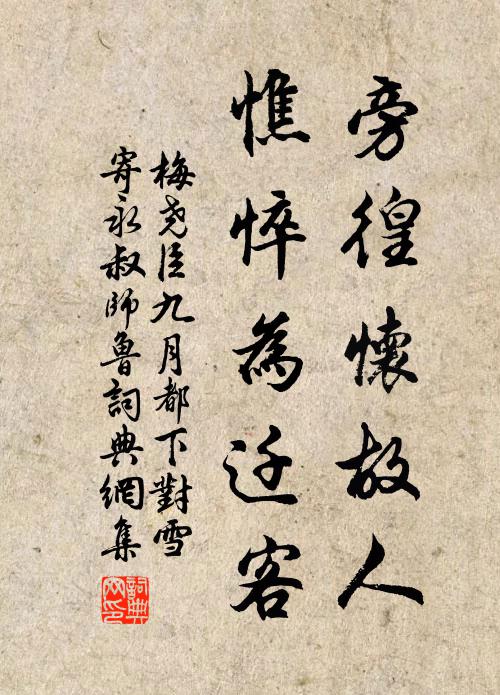 旁徨懷故人
憔悴為迁客
梅尧臣九月都下對雪
寄永叔師魯詞典網集
詞典網印